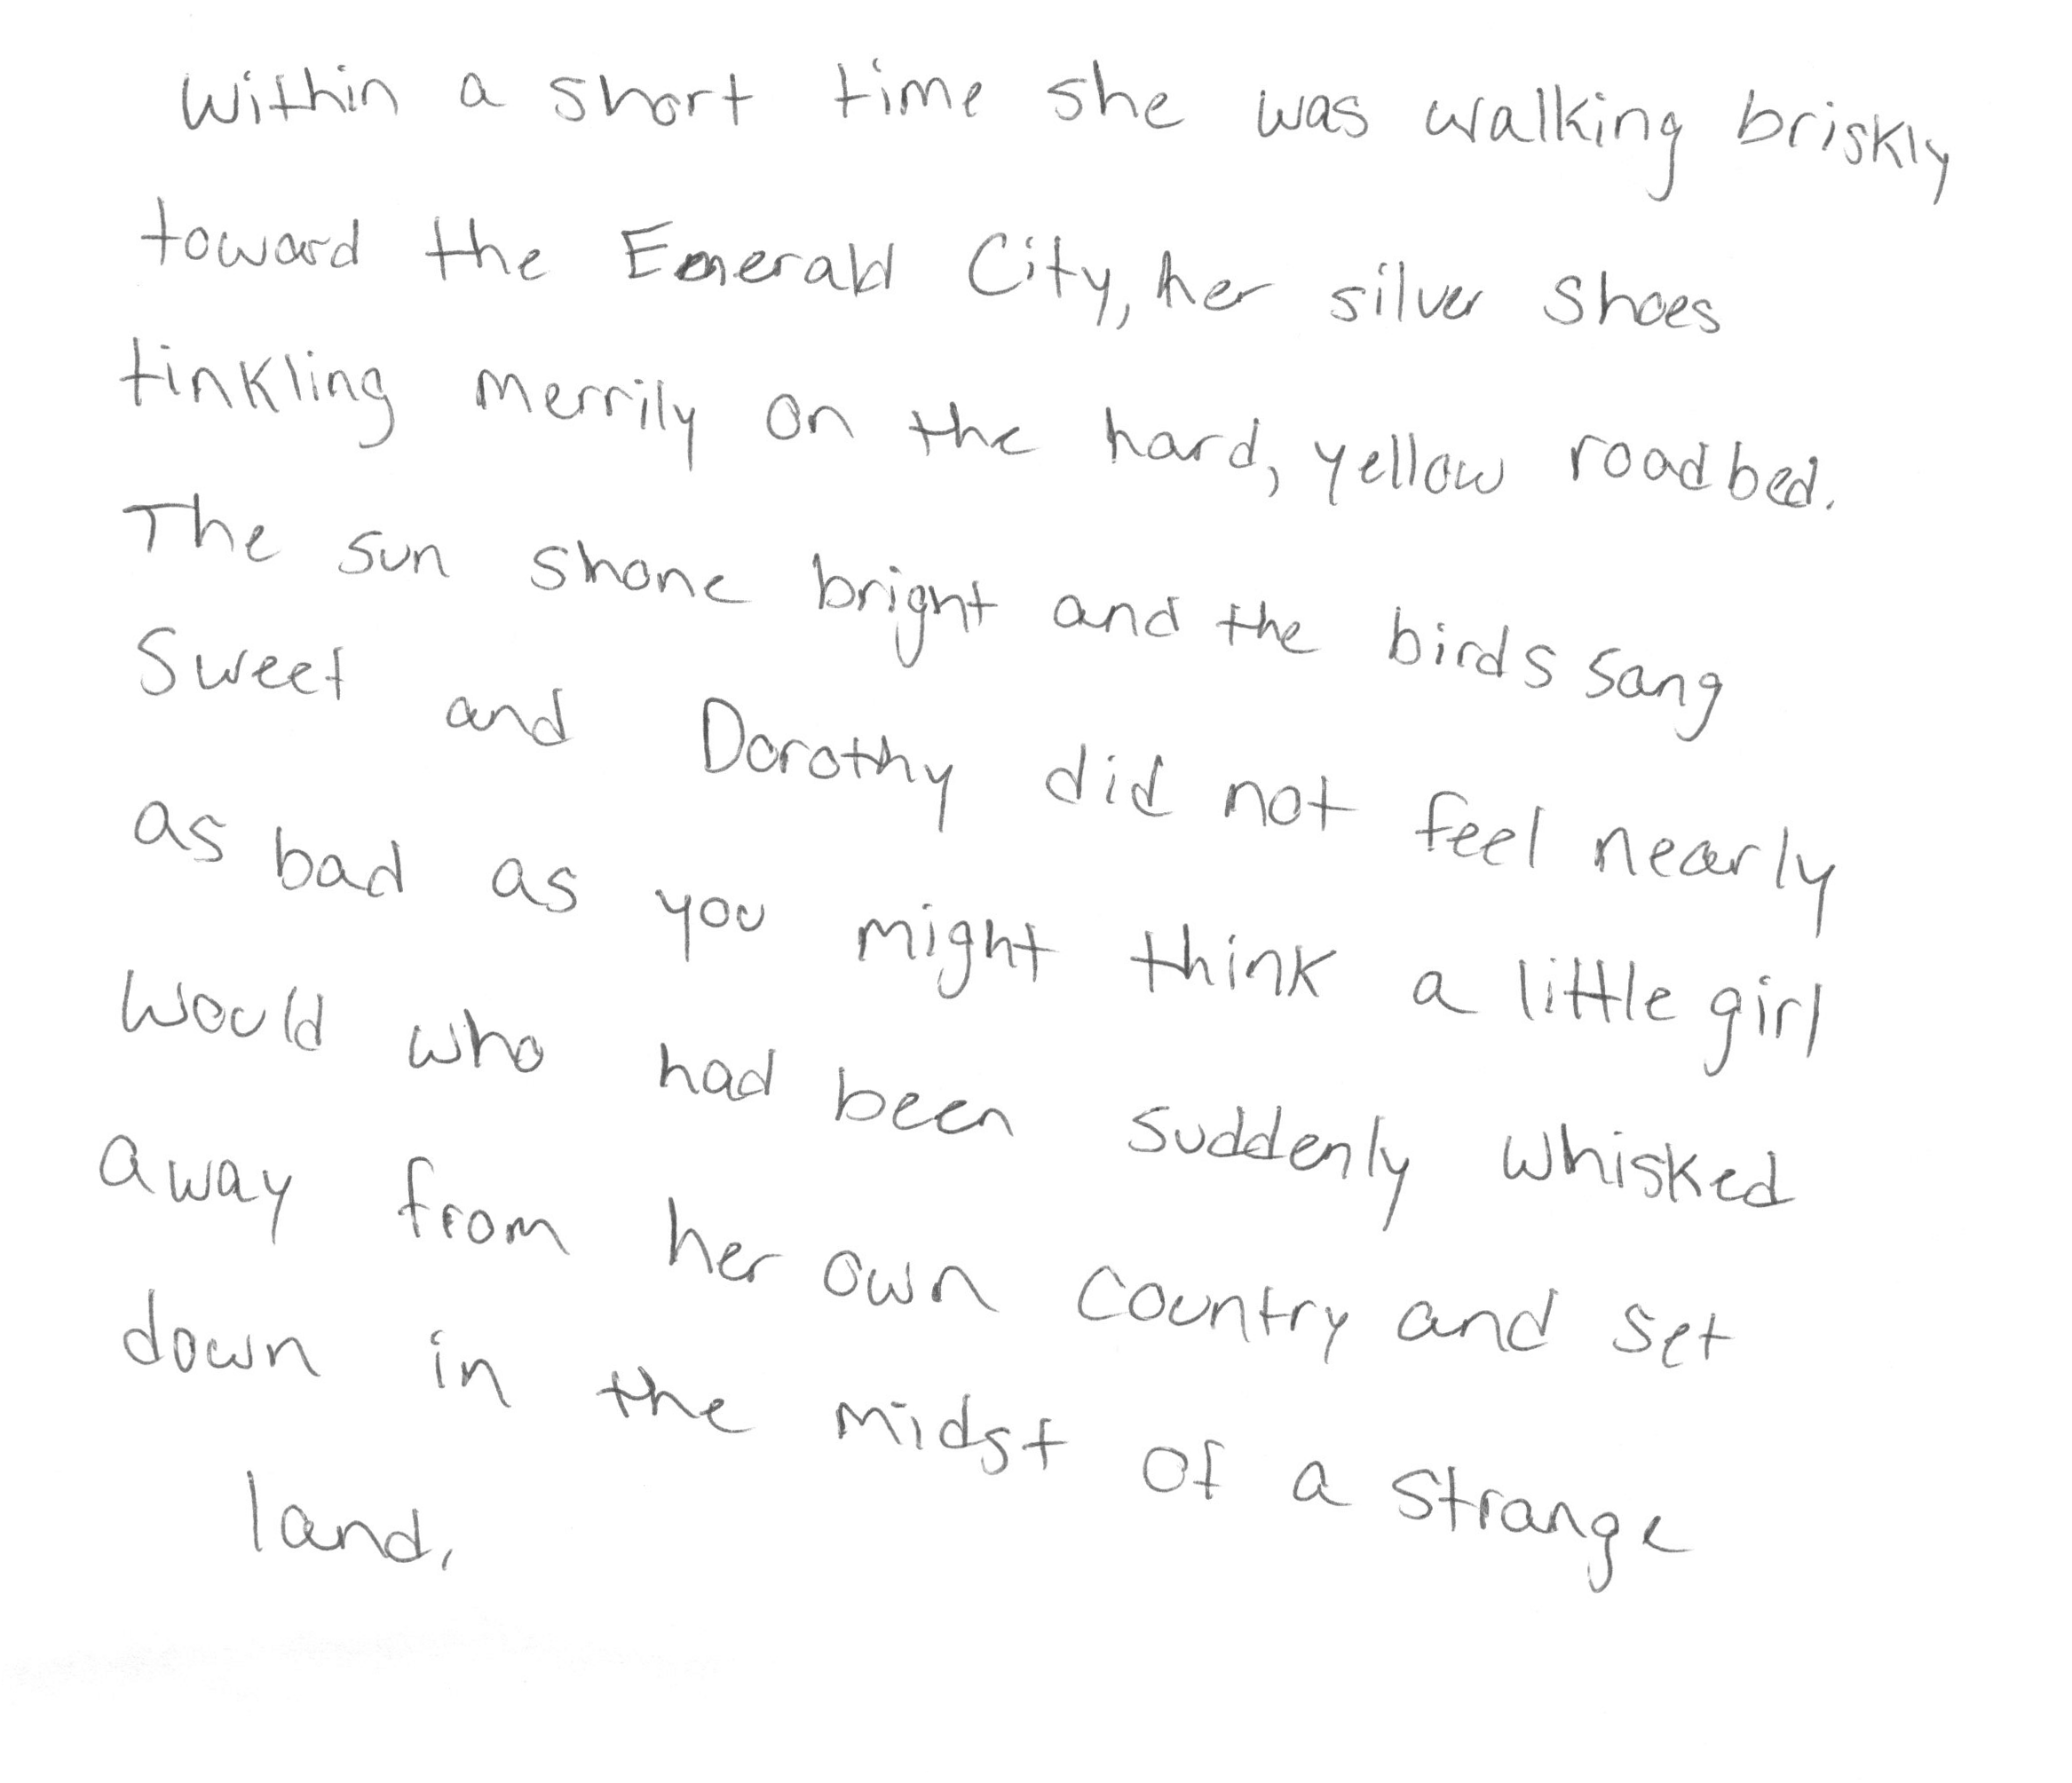 Within a short time she was walking briskly
toward the Emerald City, her silver shoes
tinkling merrily on the hard, yellow roadbed.
The sun shone bright and the birds sang
Sweet and Dorothy did not feel nearly
as bad as you might think a little girl
would who had been suddenly whisked
away from her own country and set
down in the midst of a strange
land.